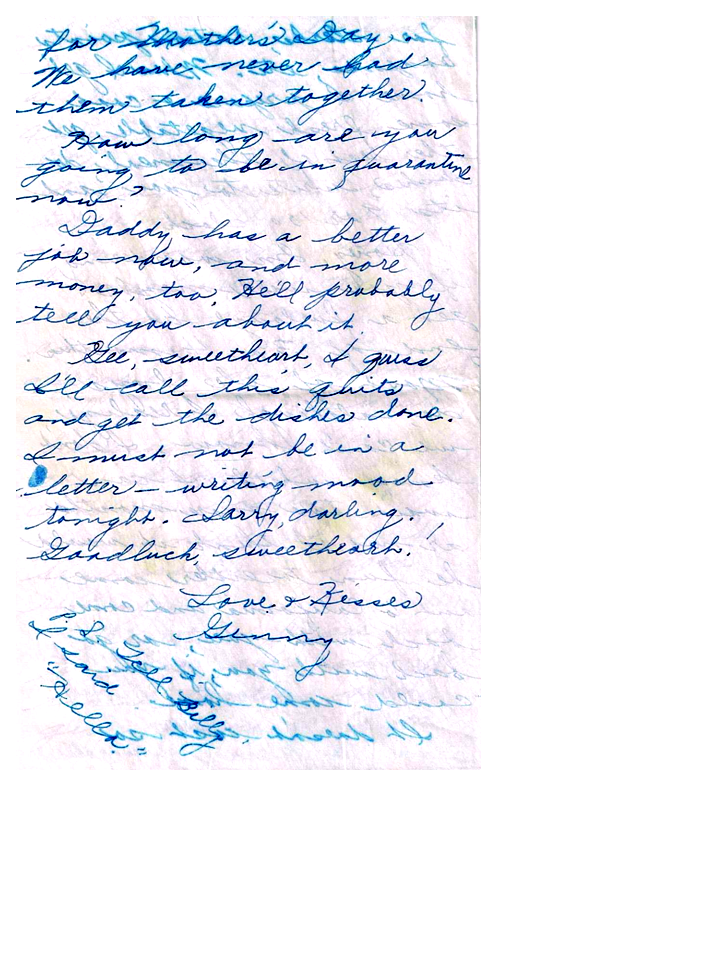 for Mother's Day.
We have never had
them taken together.
How long are you
going to be in quarantine
now?
Daddy has a better
job now, and more
money, too. He'll probably
tell you about it.
Gee, sweetheart, I guess
I'll call this quits
and get the dishes done.
I must not be in a
letter-writing mood
tonight. Sorry, darling.
Goodluck, sweetheart!
Love & Kisses
Ginny
P.S. Tell Billy
I said
"Hello."